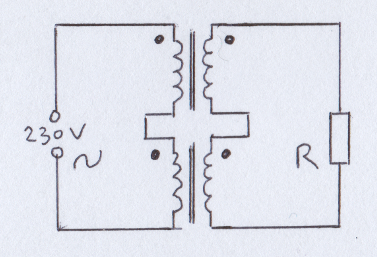 230 V
~
R